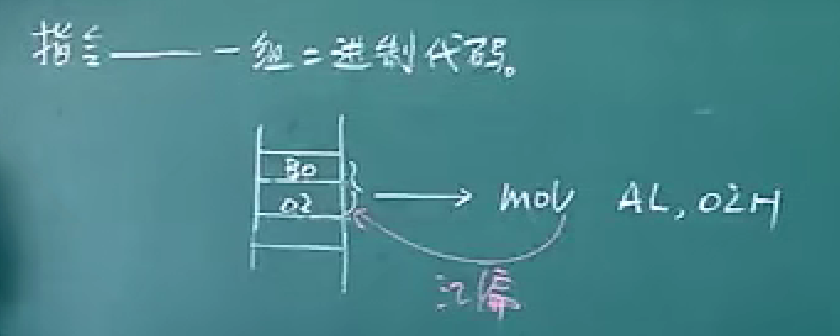 指令——一组二进制代码。
B0
02
mov AL,02H
汇编